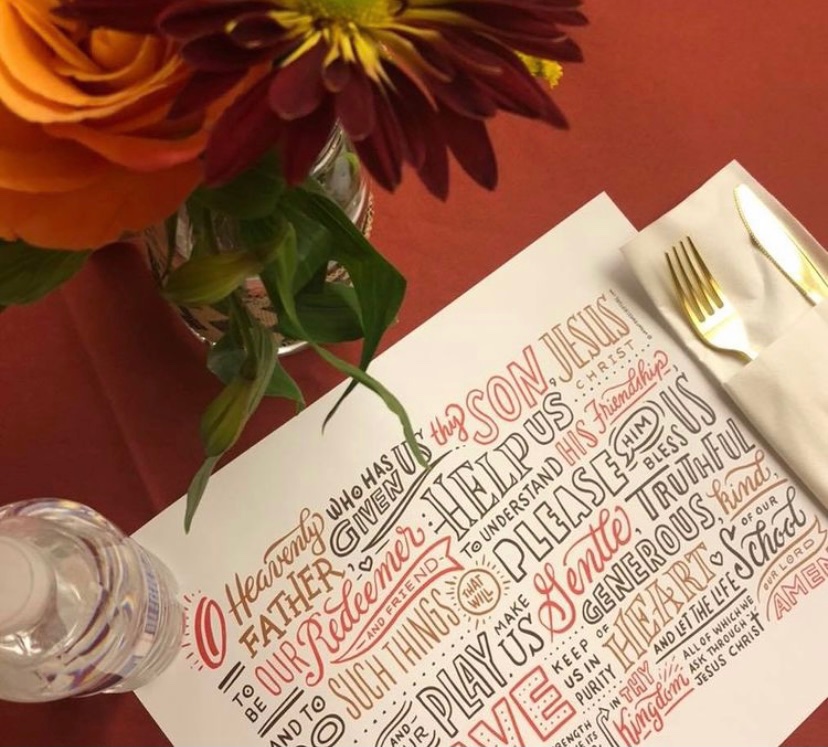 O Heavenly FATHER, WHO HAS GIVEN US thy SON, JESUS CHRIST
TO BE OUR Redeemer AND FRIEND: HELP US TO UNDERSTAND HIS Friendship
AND TO DO SUCH THINGS THAT WILL PLEASE HIM BLESS US
AND OUR PLAY MAKE US Gentle, GENEROUS, TRUTHFUL, kind,
AVE KEEP US IN PURITY OF HEART AND LET THE LIFE OF OUR School
IN THY Kingdom ALL OF WHICH WE ASK THROUGH JESUS CHRIST OUR LORD AMEN